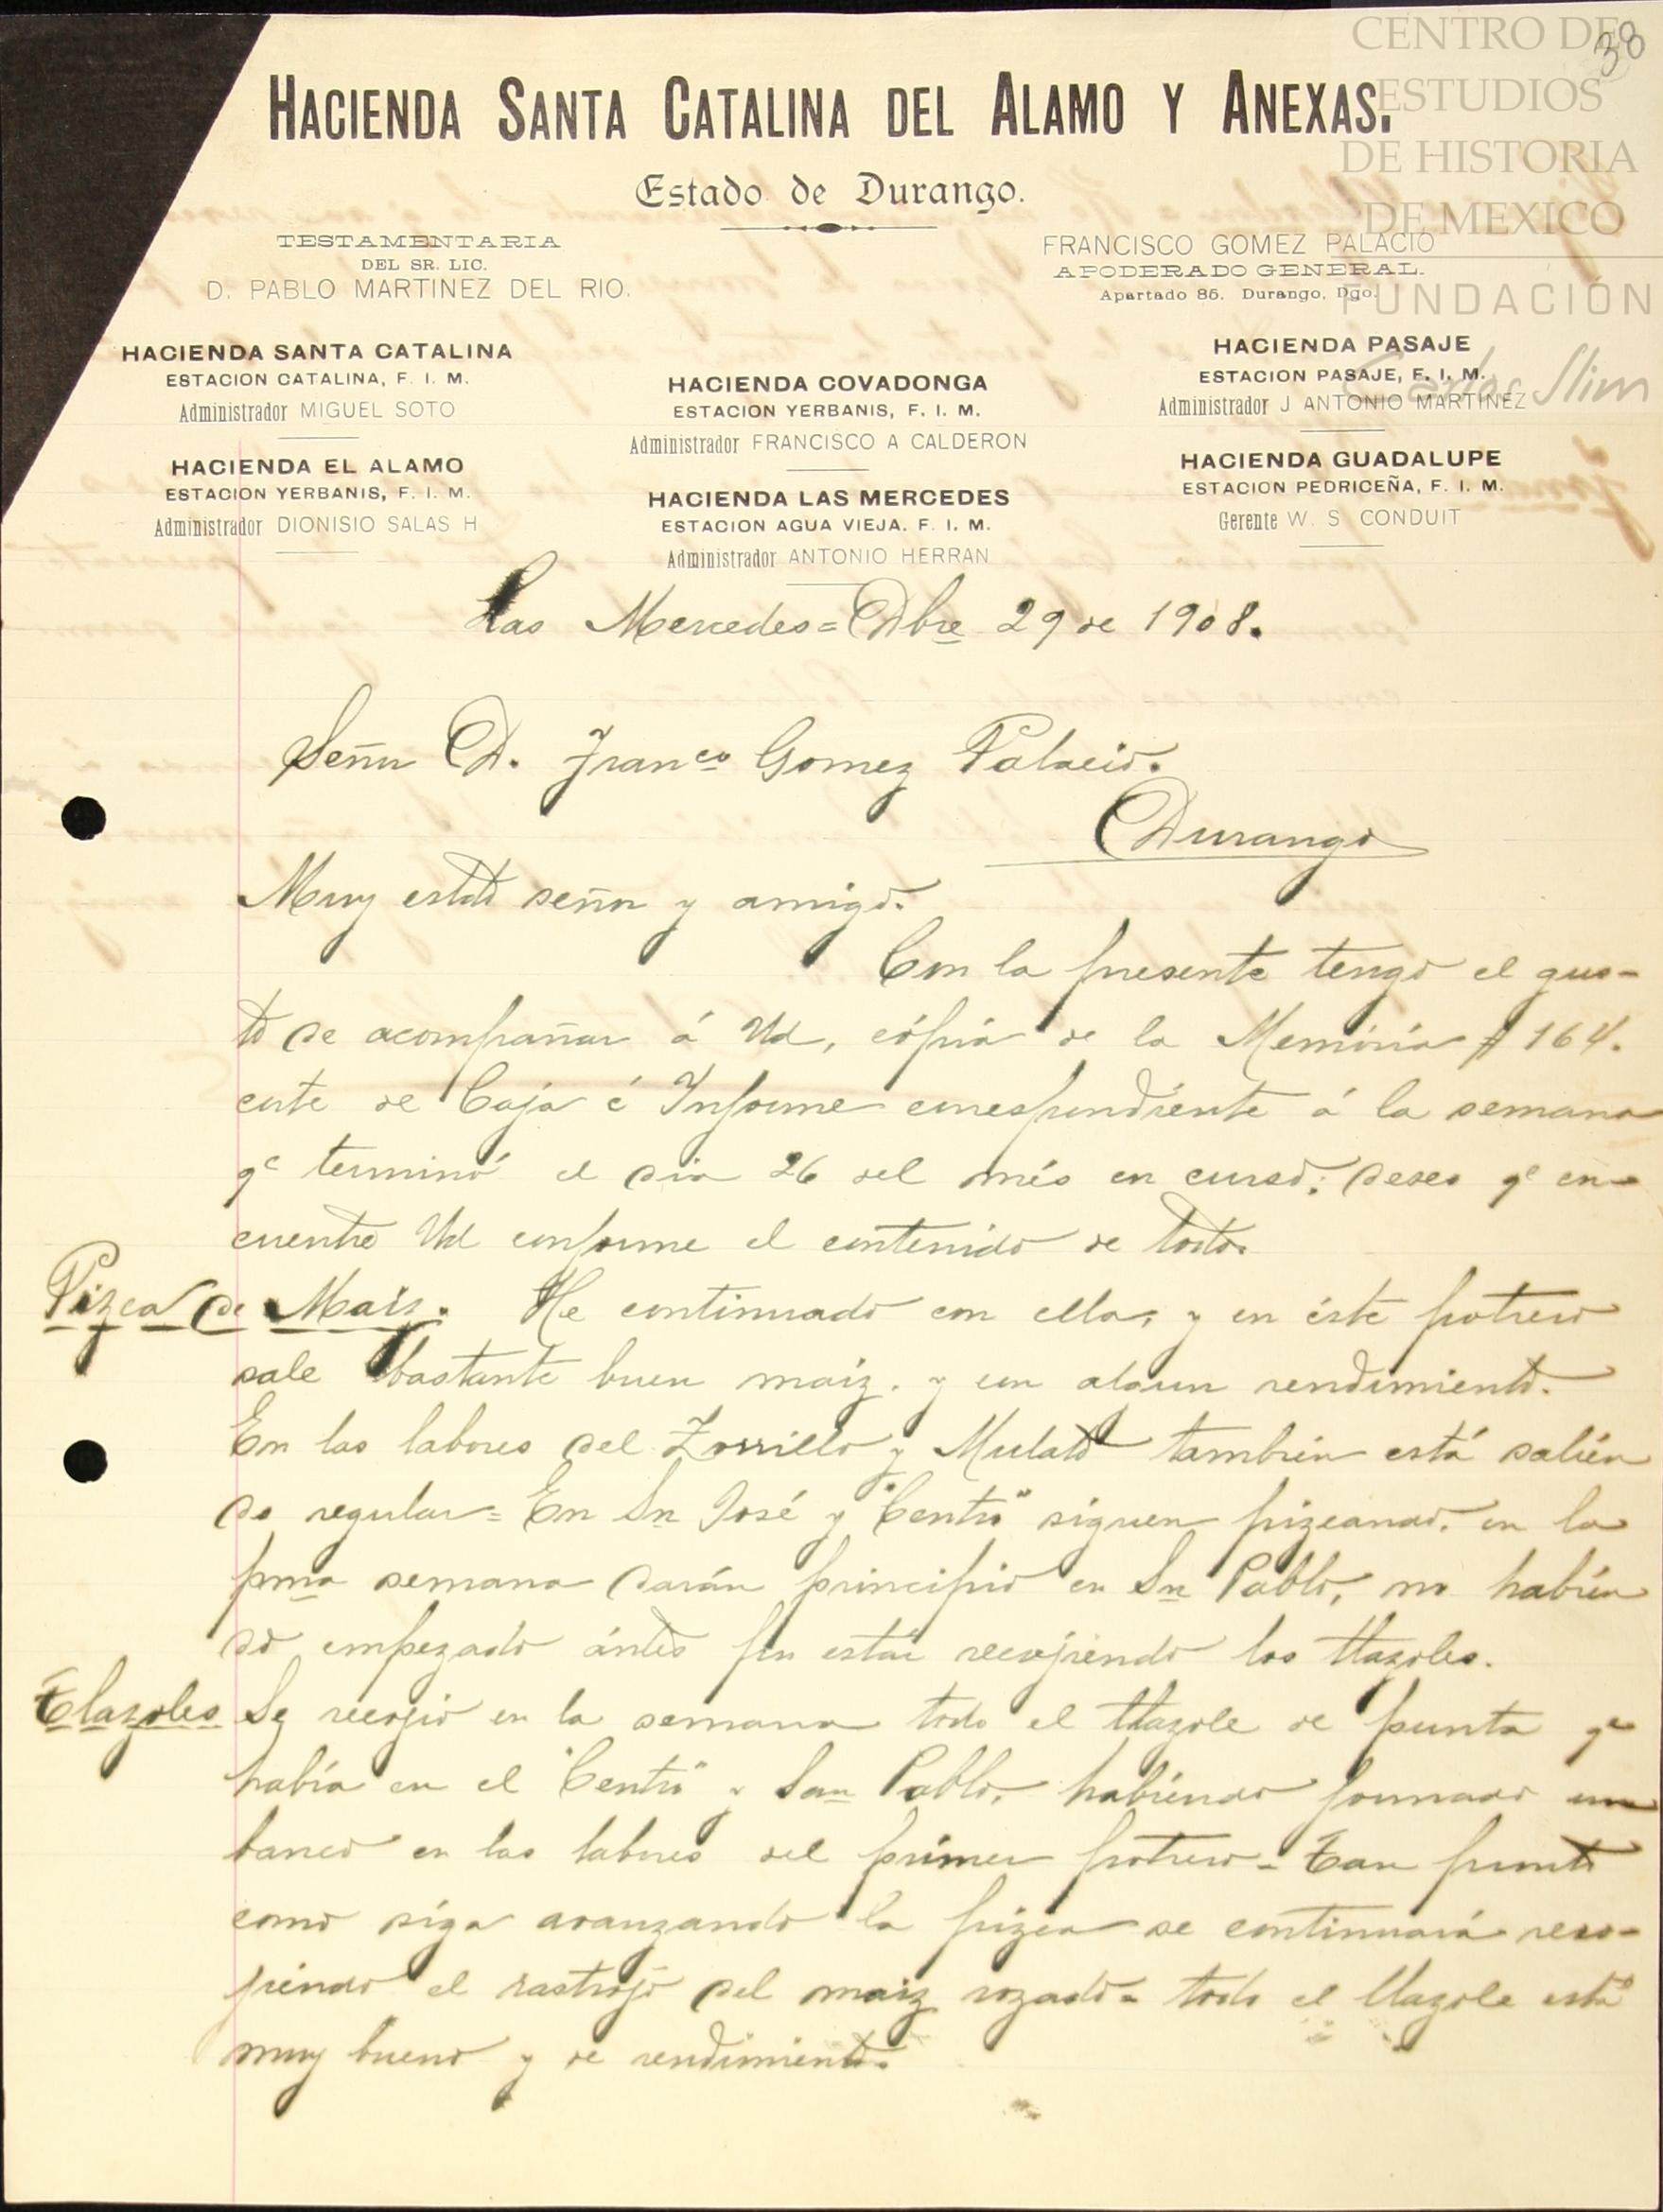 38
CENTRO DE
ESTUDIOS
DE HISTORIA
DE MEXICO
FUNDACIÓN
Carlos Slim
HACIENDA SANTA CATALINA DEL ALAMO Y ANEXAS.
Estado de Durango.
TESTAMENTARIA
DEL SR. LIC.
D. PABLO MARTINEZ DEL RIO.
FRANCISCO GOMEZ PALACIO
APODERADO GENERAL.
Apartado 86. Durango, Dgo.
HACIENDA SANTA CATALINA
ESTACION CATALINA, F. I. M.
Administrador MIGUEL SOTO
HACIENDA EL ALAMO
ESTACION YERBANIS, F. I. M.
Administrador DIONISIO SALAS H
HACIENDA COVADONGA
ESTACION YERBANIS, F. I. M.
Administrador FRANCISCO A CALDERON
HACIENDA LAS MERCEDES
ESTACION AGUA VIEJA. F. I. M.
Administrador ANTONIO HERRAN
HACIENDA PASAJE
ESTACION PASAJE, F. I. M.
Administrador J ANTONIO MARTINEZ
HACIENDA GUADALUPE
ESTACION PEDRICEÑA, F. I. M.
Gerente W. S CONDUIT
Las Mercedes = Dbre 29 de 1908.
Señor D. Franco Gomez Palacio.
Durango
Muy estdo señor y amigo.
Con la presente tengo el gus-
to de acompañar á Ud, cópia de la Memória # 164.
corte de Caja é Informe correspondiente á la semana
qe terminó el dia 26 del més en curso; deseo qe en-
cuentre Ud conforme el contenido de todo.
Pizca de Maiz. He continuado con ella, y en éste potrero
sale bastante buen maiz. y con algun rendimiento.
En las labores del Zorrillo y Mulato tambien está salien
do regular = En Sn José y "Centro" siguen pizcando. en la
pma semana darán principio en Sn Pablo, no habien
do empezado ántes por estar recojiendo los tlazoles.
Tlazoles Se recojio en la semana todo el tlazole de punta qe
había en el "Centro" y San Pablo, habiendo formado un
banco en las labores del primer potrero - Tan pronto
como siga avanzando la pizca se continuará reco-
jiendo el rastrojo del maiz rozado = todo el tlazole está
muy bueno y de rendimiento.